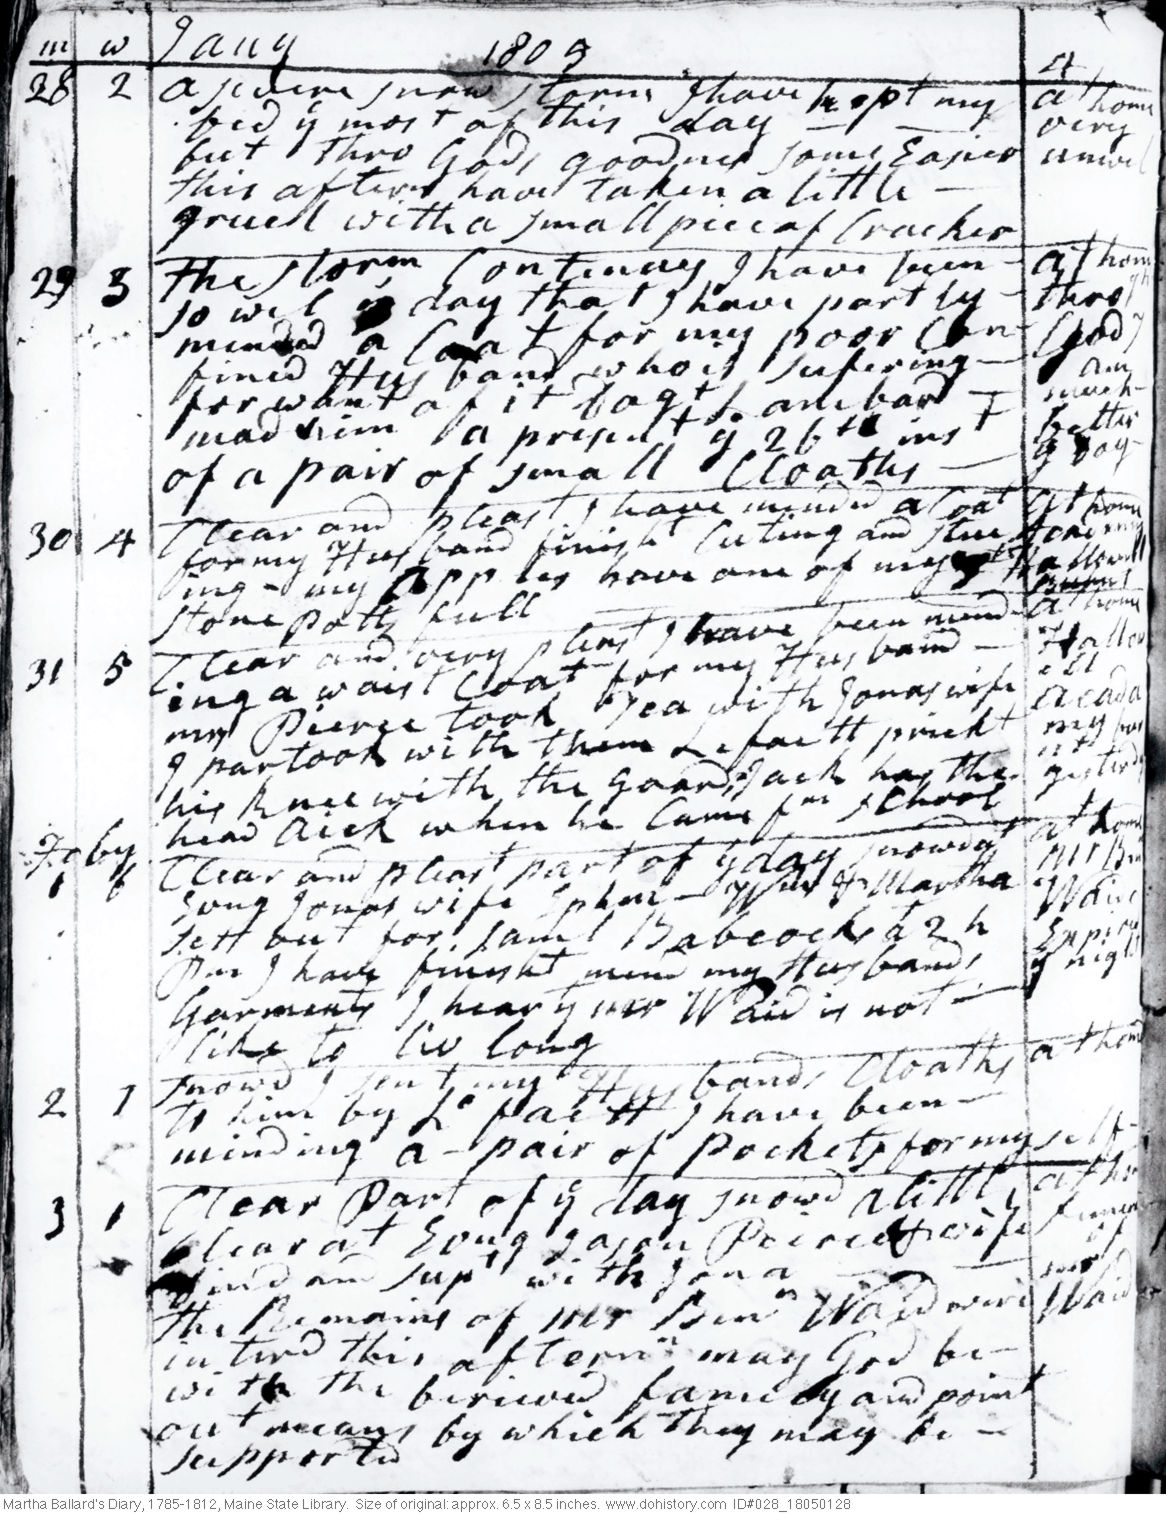 m w Jany 1805 4
28 2 a severe snow storm I have kept my
bed ÿ most of this day —
but thro Gods goodness some Easier
this aftern have taken a little —
gruell with a small piece of Cracker
at home
very
unwel
29 3 the storm Continues I have been
so wel ÿ day that I have partly
minded a Coat for my poor Con
fined Husband who is sufering —
for want of it Dagt Lambard
mad him a present ÿ 26th inst
of a pair of small Cloaths —
at home
thro
God
am
much
better
ÿ day
30 4 Clear and pleast I have minded a Coat
for my Husband finisht Cuting and stue
ing - my Apples have one of my
stone Potts full
at home
Academy
Hallowell
Burnt
31 5 Clear and very pleast I have been mend
ing a waist Coat for my Husband —
mrs Pierce took Tea with Jonas wife
I partook with them Lafaett prickt
his knee with the Goard, Jack has the
head Aick when he Came fm school
at home
Hallow
ell
Acada
my
yesterdy
Feby
1 6 Clear and pleast part of ÿ day snowd at
Evng Jonas wife Ephm — Wm & Martha
sett out for Saml Babcocks at 2 h
Pm I have finisht mend my Husbands
Garments I hear ÿ mr Waid is not —
like to liv long
at home
mr Bn
Waid
Expird
ÿ night
2 7 snowd I sent my Husbands Cloaths
to him by La faett I have been —
minding a - pair of Pockets for my self -
at home
3 1 Clear Part of ÿ day snowd a little,
Clear at Evng Jason Peirce & wife
dind and supt with Jona —
the Remains of mr Benn Waid were
interd this afternn may God be —
with the berieved family and point
out means by which they may be —
supported
at the
funeral
of
mr
Waid
Martha Ballard's Diary, 1785-1812, Maine State Library. Size of original: approx. 6.5 x 8.5 inches. www.dohistory.com ID#028_18050128